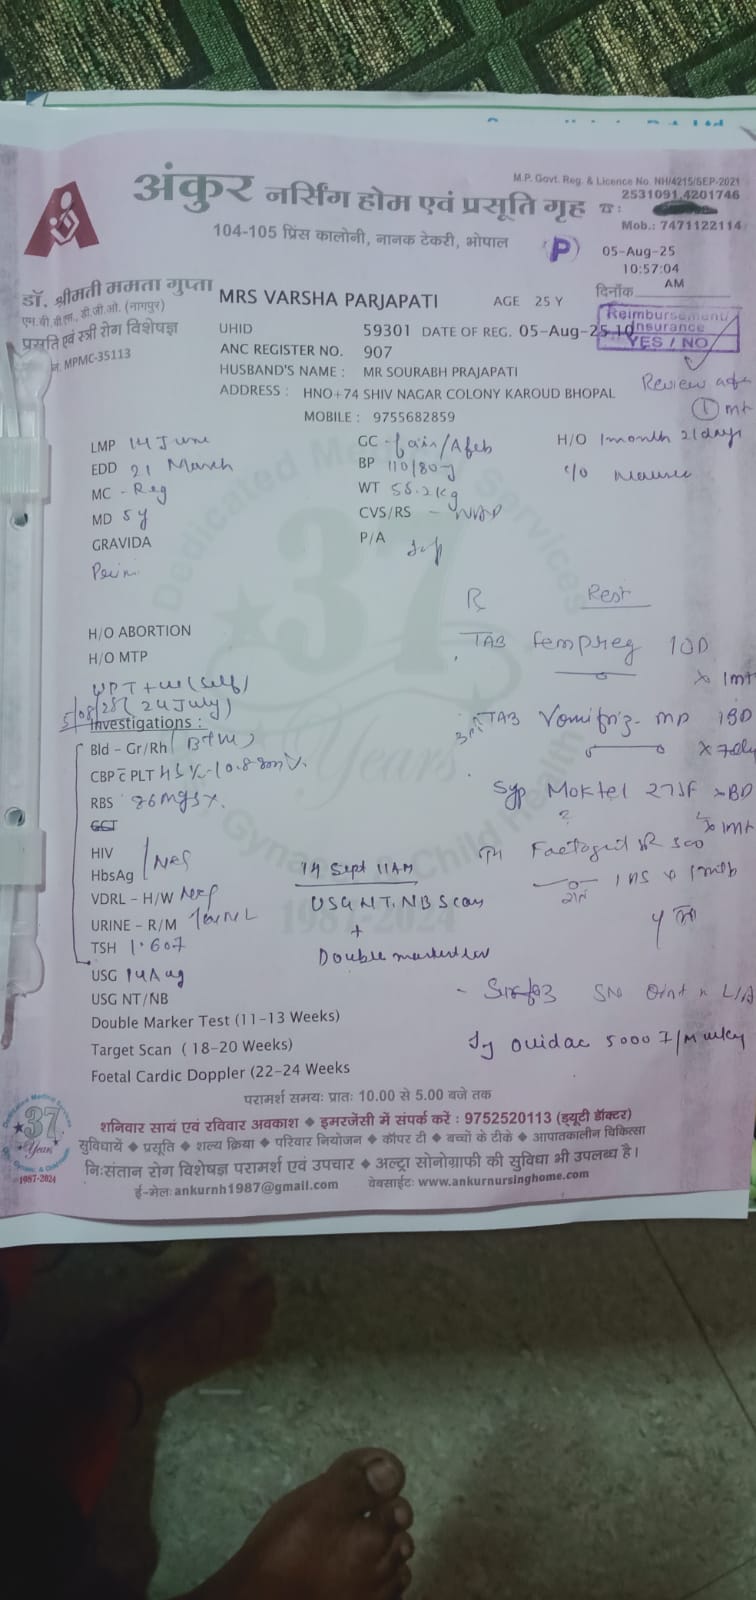 M.P. Govt. Reg. & Licence No. NH/4215/SEP-2021
अंकुर नर्सिंग होम एवं प्रसूति गृह
☎: 2531091,4201746
Mob.: 7471122114
104-105 प्रिंस कालोनी, नानक टेकरी, भोपाल
P
05-Aug-25
10:57:04 AM
दिनाँक
डॉ. श्रीमती ममता गुप्ता
एम.बी.बी.एस., डी.जी.ओ. (नागपुर)
प्रसूति एवं स्त्री रोग विशेषज्ञ
MPMC-35113
MRS VARSHA PARJAPATI AGE 25 Y
Reimbursement/
Insurance
YES / NO
UHID 59301 DATE OF REG. 05-Aug-25 10
ANC REGISTER NO. 907
HUSBAND'S NAME : MR SOURABH PRAJAPATI
ADDRESS : HNO+74 SHIV NAGAR COLONY KAROUD BHOPAL
MOBILE : 9755682859
Review
1 mt
LMP 14 June
EDD 21 March
MC - Reg
MD 5y
GRAVIDA
GC - fair/Afeb
BP 110/80
WT 55.2kg
CVS/RS - NAD
P/A
H/O 1month 21days
c/o
H/O ABORTION
H/O MTP
UPT +ve (self)
5/08/25 (24 July)
Investigations :
Bld - Gr/Rh
CBP c̄ PLT
RBS 86mg
GCT
HIV
HbsAg Neg
VDRL - H/W
URINE - R/M
TSH 1.607
USG 14 Aug
USG NT/NB
Double Marker Test (11-13 Weeks)
Target Scan ( 18-20 Weeks)
Foetal Cardic Doppler (22-24 Weeks
14 Sept 11AM
USG NT/NB Scan
+
Double marker
R Rest
TAB Fempreg 1OD
x 1mt
TAB MD 1BD
Syp BD
x 1mt
SN Oint L/A
5000 I/M
Dedicated Medical Services
37 Years
Gynae & Child Health
1987-2024
परामर्श समय: प्रातः 10.00 से 5.00 बजे तक
शनिवार सायं एवं रविवार अवकाश ◆ इमरजेंसी में संपर्क करें : 9752520113 (ड्यूटी डॉक्टर)
सुविधायें ◆ प्रसूति ◆ शल्य क्रिया ◆ परिवार नियोजन ◆ कॉपर टी ◆ बच्चों के टीके ◆ आपातकालीन चिकित्सा
निःसंतान रोग विशेषज्ञ परामर्श एवं उपचार ◆ अल्ट्रा सोनोग्राफी की सुविधा भी उपलब्ध है।
ई-मेलः ankurnh1987@gmail.com वेबसाईटः www.ankurnursinghome.com
37
Years
1987-2024